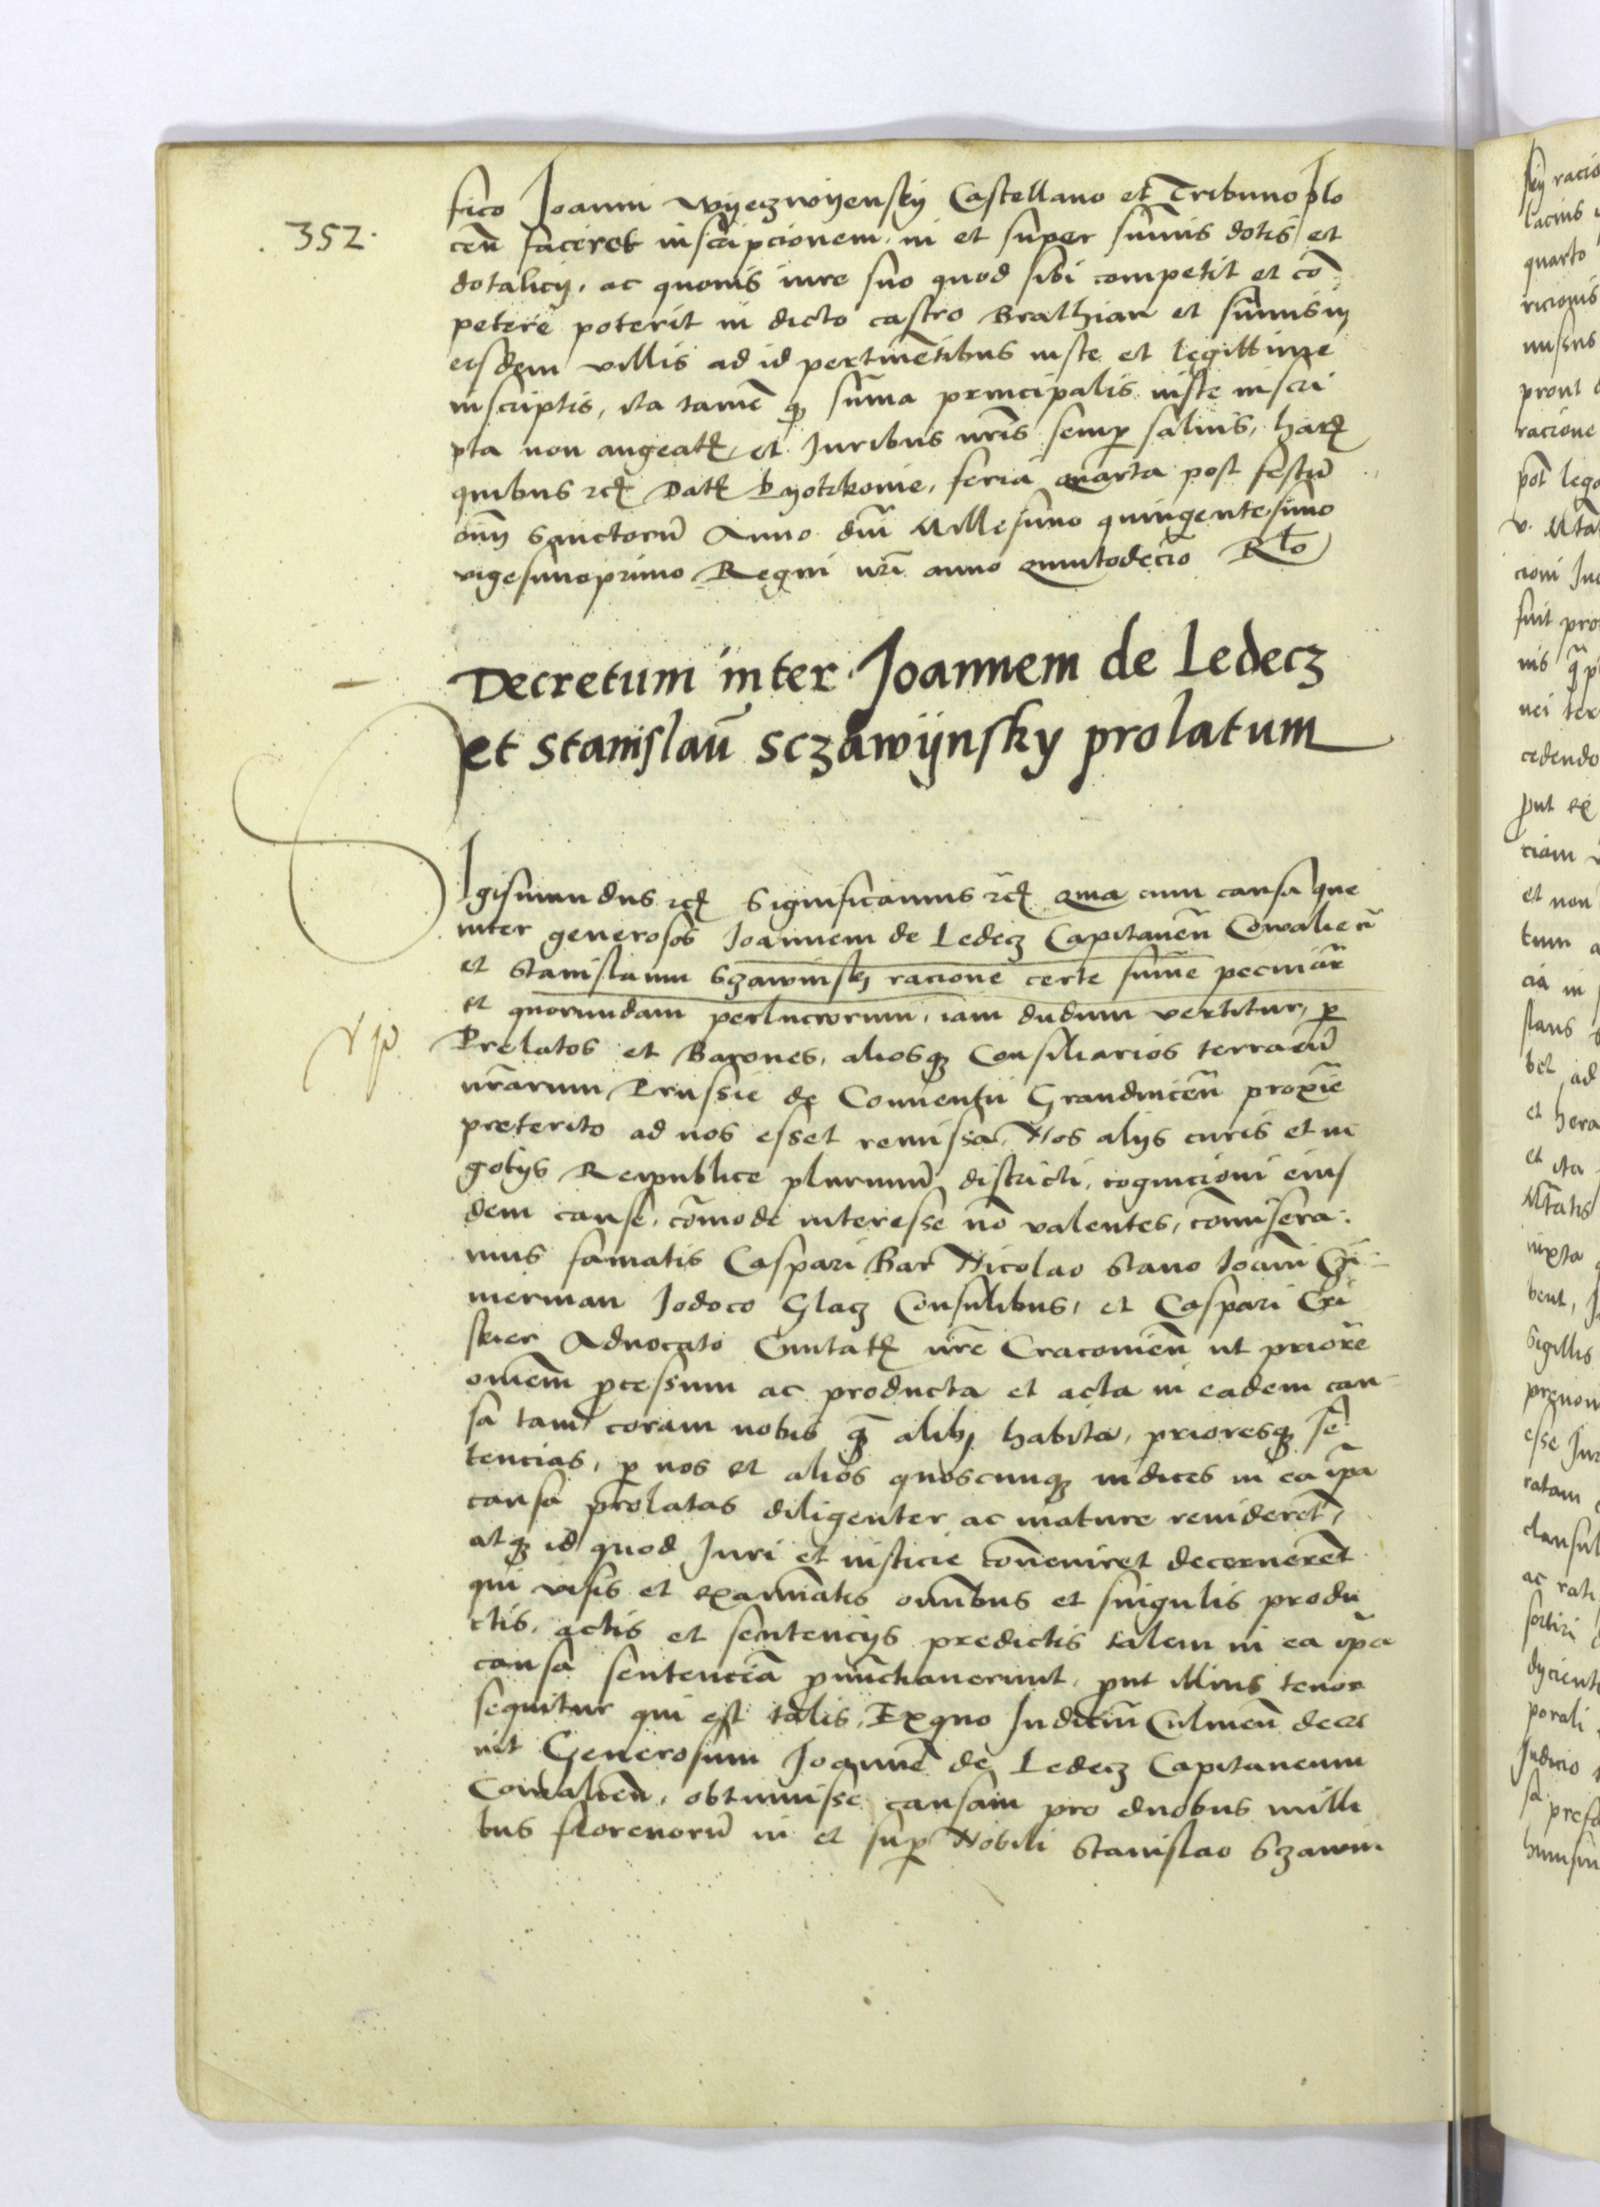 352.
fico Joanni Wyeczwyensky Castellano et Tribuno Plo
ceñ faceret inscripcionem, in et super sum̃is dotis et
dotalicij, ac quovis iure suo quod sibi competit et cõ
petere poterit in dicto castro Brathian et sum̃is in
eisdem villis ad id pertinẽtibus iuste et legittime
inscriptis, ita tamẽ q3 sum̃a principalis iuste inscri
pta non augeat~, et Juribus nr̃is semp salvis, har~
quibus rc~ Dat~ Pyotrkovie, feria quarta post festũ
oĩm Sanctorũ Anno dnĩ Millesimo quingentesimo
vigesimoprimo Regni nr̃i anno quintodecĩo Rl̃o
Decretum inter Joannem de Ledecz
et Stanislaũ Sczawijnsky prolatum
Igismundus rc~ Significamus rc~ Quia cum causa que
inter generosos Joannem de Ledecz Capitaneũ Cowalieñ
et Stanislaum Szawinsky racione certe sum̃e pecuniar~
et quorumdam perlucrorum, iam dudum vertitur, p
Prelatos et Barones, aliosq3 Consiliarios terrarũ
nr̃arum Prussie de Conventu Graudniceñ proxĩe
preterito ad nos esset remissa, Nos alijs curis et ne
gotijs Reipublice plurimũ districti, cognicioni eius
dem cause, cõmode interesse nõ valentes, cõmisera:
mus famatis Caspari Bar Nicolao Stano Joanni Czi
merman Jodoco Glacz Consulibus, et Caspari
Advocato Civitat~ nr̃e Cracovieñ ut priorẽ
omnem pcessum ac producta et acta in eadem cau-
sa tam coram nobis q3 alibi habita, prioresq3 sẽ
tencias, p nos et alios quoscunq3 iudices in ea ip̃a
causa prolatas diligenter ac mature reviderẽt,
atq3 id quod Juri et iusticie cõveniret decernerẽt
qui visis et examĩatis omnibus et singulis produ
ctis, actis et sentencijs predictis talem in ea ip̃a
causa sentenciã pnũctiaverunt, put illius tenor
sequitur qui est talis, Exquo Judiciũ Culmeñ decre
vit Generosum Joannẽ de Ledecz Capitaneum
Cowalieñ, obtinuisse causam pro duobus milli
bus florenorũ in et sup Nobili Stanislao Szawin